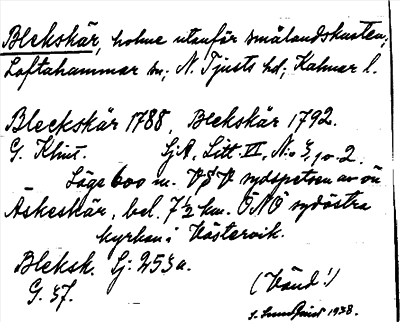 Blekskär, holme utanför smålandskusten,
Loftahammar sn; N. Tjusts hd; Kalmar l.
Bleckskär 1788, Bleckskär 1792.
G. Klint. SjA, Litt. VI, No 3, 10-2.
Läge 600 m. VSV sydspetsen av ön
Äskeskär, bel. 7½ km. ÖNÖ sydöstra
kyrkan i Västervik.
Bleksk. Sj: 253a.
G. 37. (Vänd!)
1938.